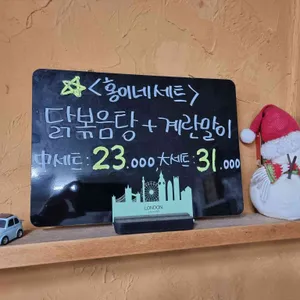 <홍이네세트>
닭볶음탕 + 계란말이
中세트: 23.000 大세트: 31.000
LONDON